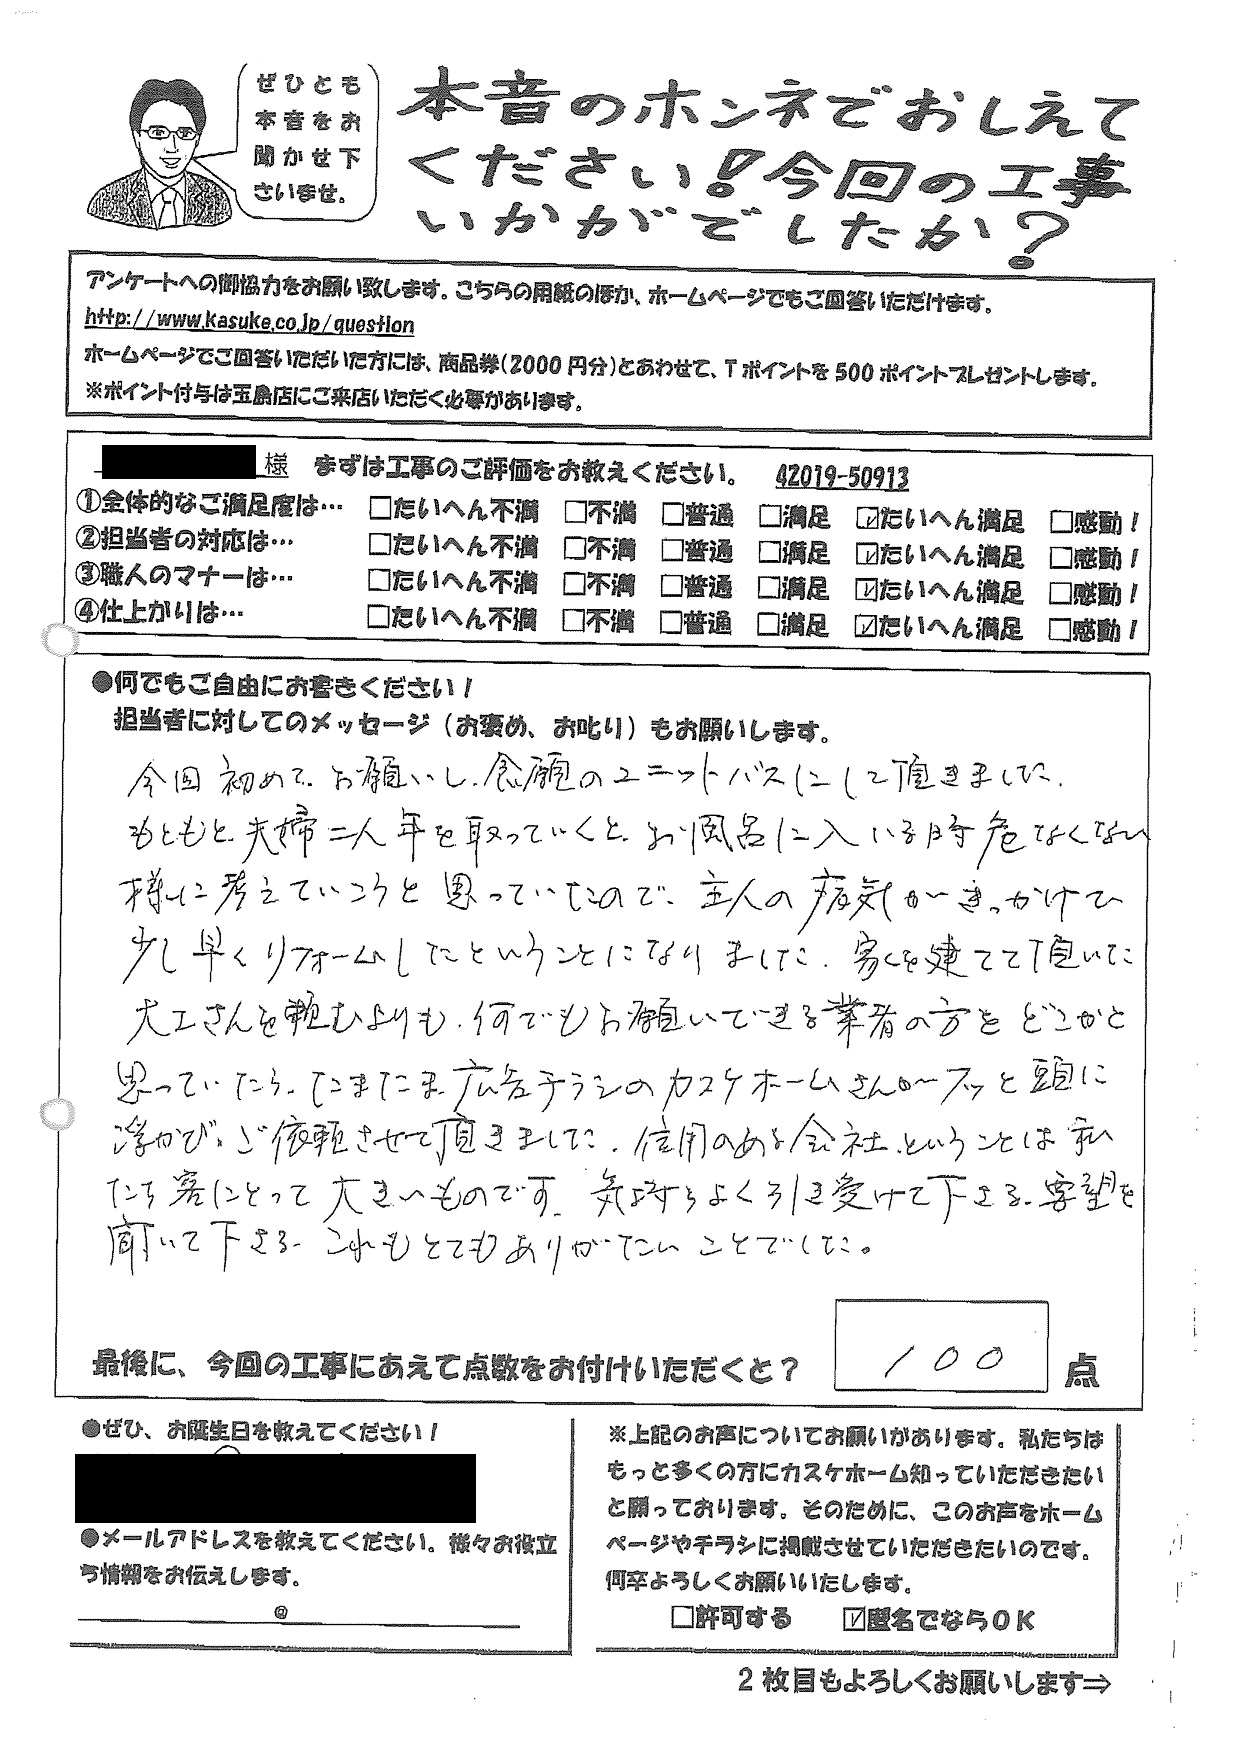 ぜひとも
本音をお
聞かせ下
さいませ。
本音のホンネでおしえて
ください！今回の工事
いかがでしたか？
アンケートへの御協力をお願い致します。こちらの用紙のほか、ホームページでもご回答いただけます。
http://www.kasuke.co.jp/question
ホームページでご回答いただいた方には、商品券(2000円分)とあわせて、Tポイントを500ポイントプレゼントします。
※ポイント付与は玉島店にご来店いただく必要があります。
様 まずは工事のご評価をお教えください。 42019-50913
①全体的なご満足度は… □たいへん不満 □不満 □普通 □満足 ☑たいへん満足 □感動！
②担当者の対応は… □たいへん不満 □不満 □普通 □満足 ☑たいへん満足 □感動！
③職人のマナーは… □たいへん不満 □不満 □普通 □満足 ☑たいへん満足 □感動！
④仕上がりは… □たいへん不満 □不満 □普通 □満足 ☑たいへん満足 □感動！
●何でもご自由にお書きください！
担当者に対してのメッセージ（お褒め、お叱り）もお願いします。
今回初めて、お願いし、念願のユニットバスにして頂きました。
もともと、夫婦二人年を取っていくと、お風呂に入いる時危なくない
様に考えていこうと思っていたので、主人の病気がきっかけで
少し早くリフォームしたということになりました。家を建てて頂いた
大工さんを頼むよりも、何でもお願いできる業者の方をどこかと
思っていたら、たまたま広告チラシのカスケホームさんがフッと頭に
浮かび、ご依頼させて頂きました。信用のある会社ということは私
たち客にとって大きいものです。気持ちよく引き受けて下さる、要望を
聞いて下さる、これもとてもありがたいことでした。
最後に、今回の工事にあえて点数をお付けいただくと？ 100 点
●ぜひ、お誕生日を教えてください！
●メールアドレスを教えてください。様々お役立
ち情報をお伝えします。
@
※上記のお声についてお願いがあります。私たちは
もっと多くの方にカスケホーム知っていただきたい
と願っております。そのために、このお声をホーム
ページやチラシに掲載させていただきたいのです。
何卒よろしくお願いいたします。
□許可する ☑匿名でならOK
2枚目もよろしくお願いします⇒